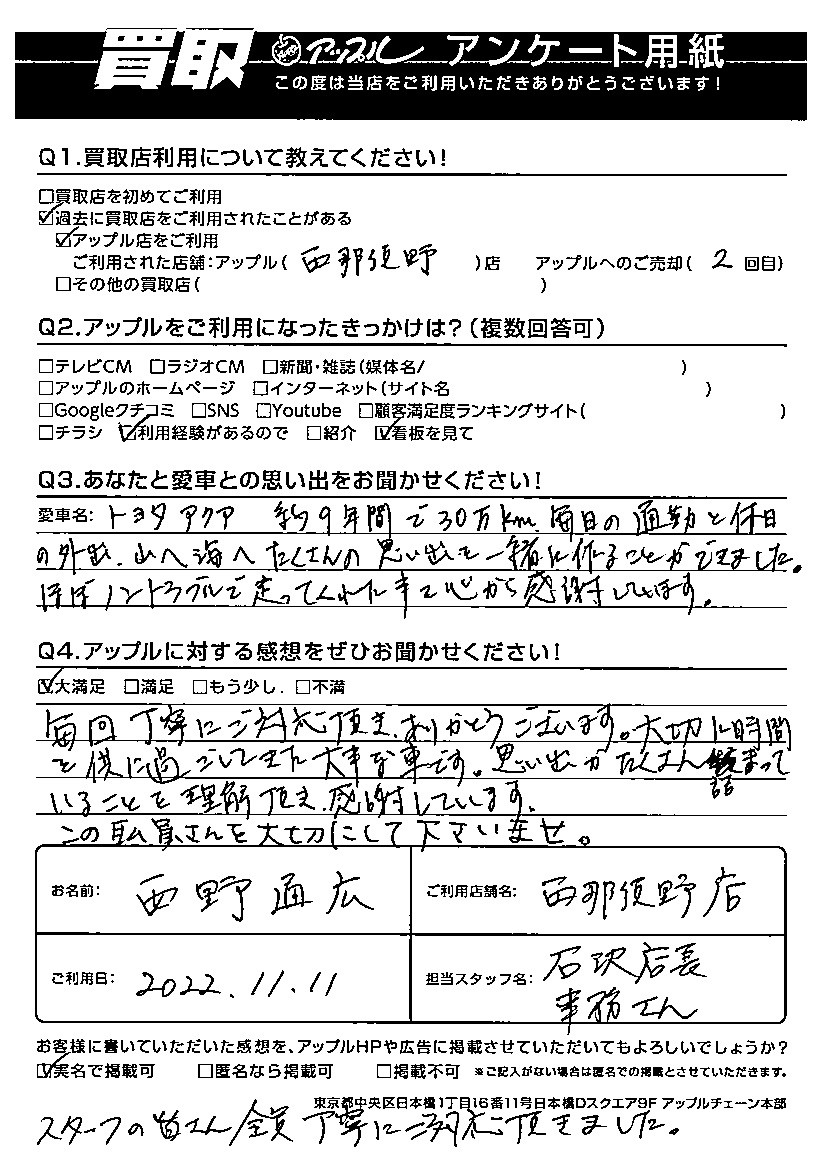 買取 アップル アンケート用紙
この度は当店をご利用いただきありがとうございます!
Q1.買取店利用について教えてください!
□買取店を初めてご利用
☑過去に買取店をご利用されたことがある
☑アップル店をご利用
ご利用された店舗:アップル( 西那須野 )店 アップルへのご売却( 2 回目)
□その他の買取店( )
Q2.アップルをご利用になったきっかけは?(複数回答可)
□テレビCM □ラジオCM □新聞・雑誌(媒体名/ )
□アップルのホームページ □インターネット(サイト名 )
□Googleクチコミ □SNS □Youtube □顧客満足度ランキングサイト( )
□チラシ ☑利用経験があるので □紹介 ☑看板を見て
Q3.あなたと愛車との思い出をお聞かせください!
愛車名: トヨタ アクア 約9年間で30万km、毎日の通勤と休日
の外出、山へ海へたくさんの思い出を一緒に作ることができました。
ほぼノントラブルで走ってくれた事を心から感謝しています。
Q4.アップルに対する感想をぜひお聞かせください!
☑大満足 □満足 □もう少し. □不満
毎回丁寧にご対応頂き、ありがとうございます。大切に時間
を供に過ごしてきた大事な車です。思い出がたくさん詰まって
いることを理解頂き、感謝しています。
この店員さんを大切にして下さいませ。
お名前: 西野通広 ご利用店舗名: 西那須野店
ご利用日: 2022.11.11 担当スタッフ名: 石沢店長
事務さん
お客様に書いていただいた感想を、アップルHPや広告に掲載させていただいてもよろしいでしょうか?
☑実名で掲載可 □匿名なら掲載可 □掲載不可 ※ご記入がない場合は匿名での掲載とさせていただきます。
東京都中央区日本橋1丁目16番11号日本橋Dスクエア9F アップルチェーン本部
スタッフの皆さん全員丁寧にご対応頂きました。